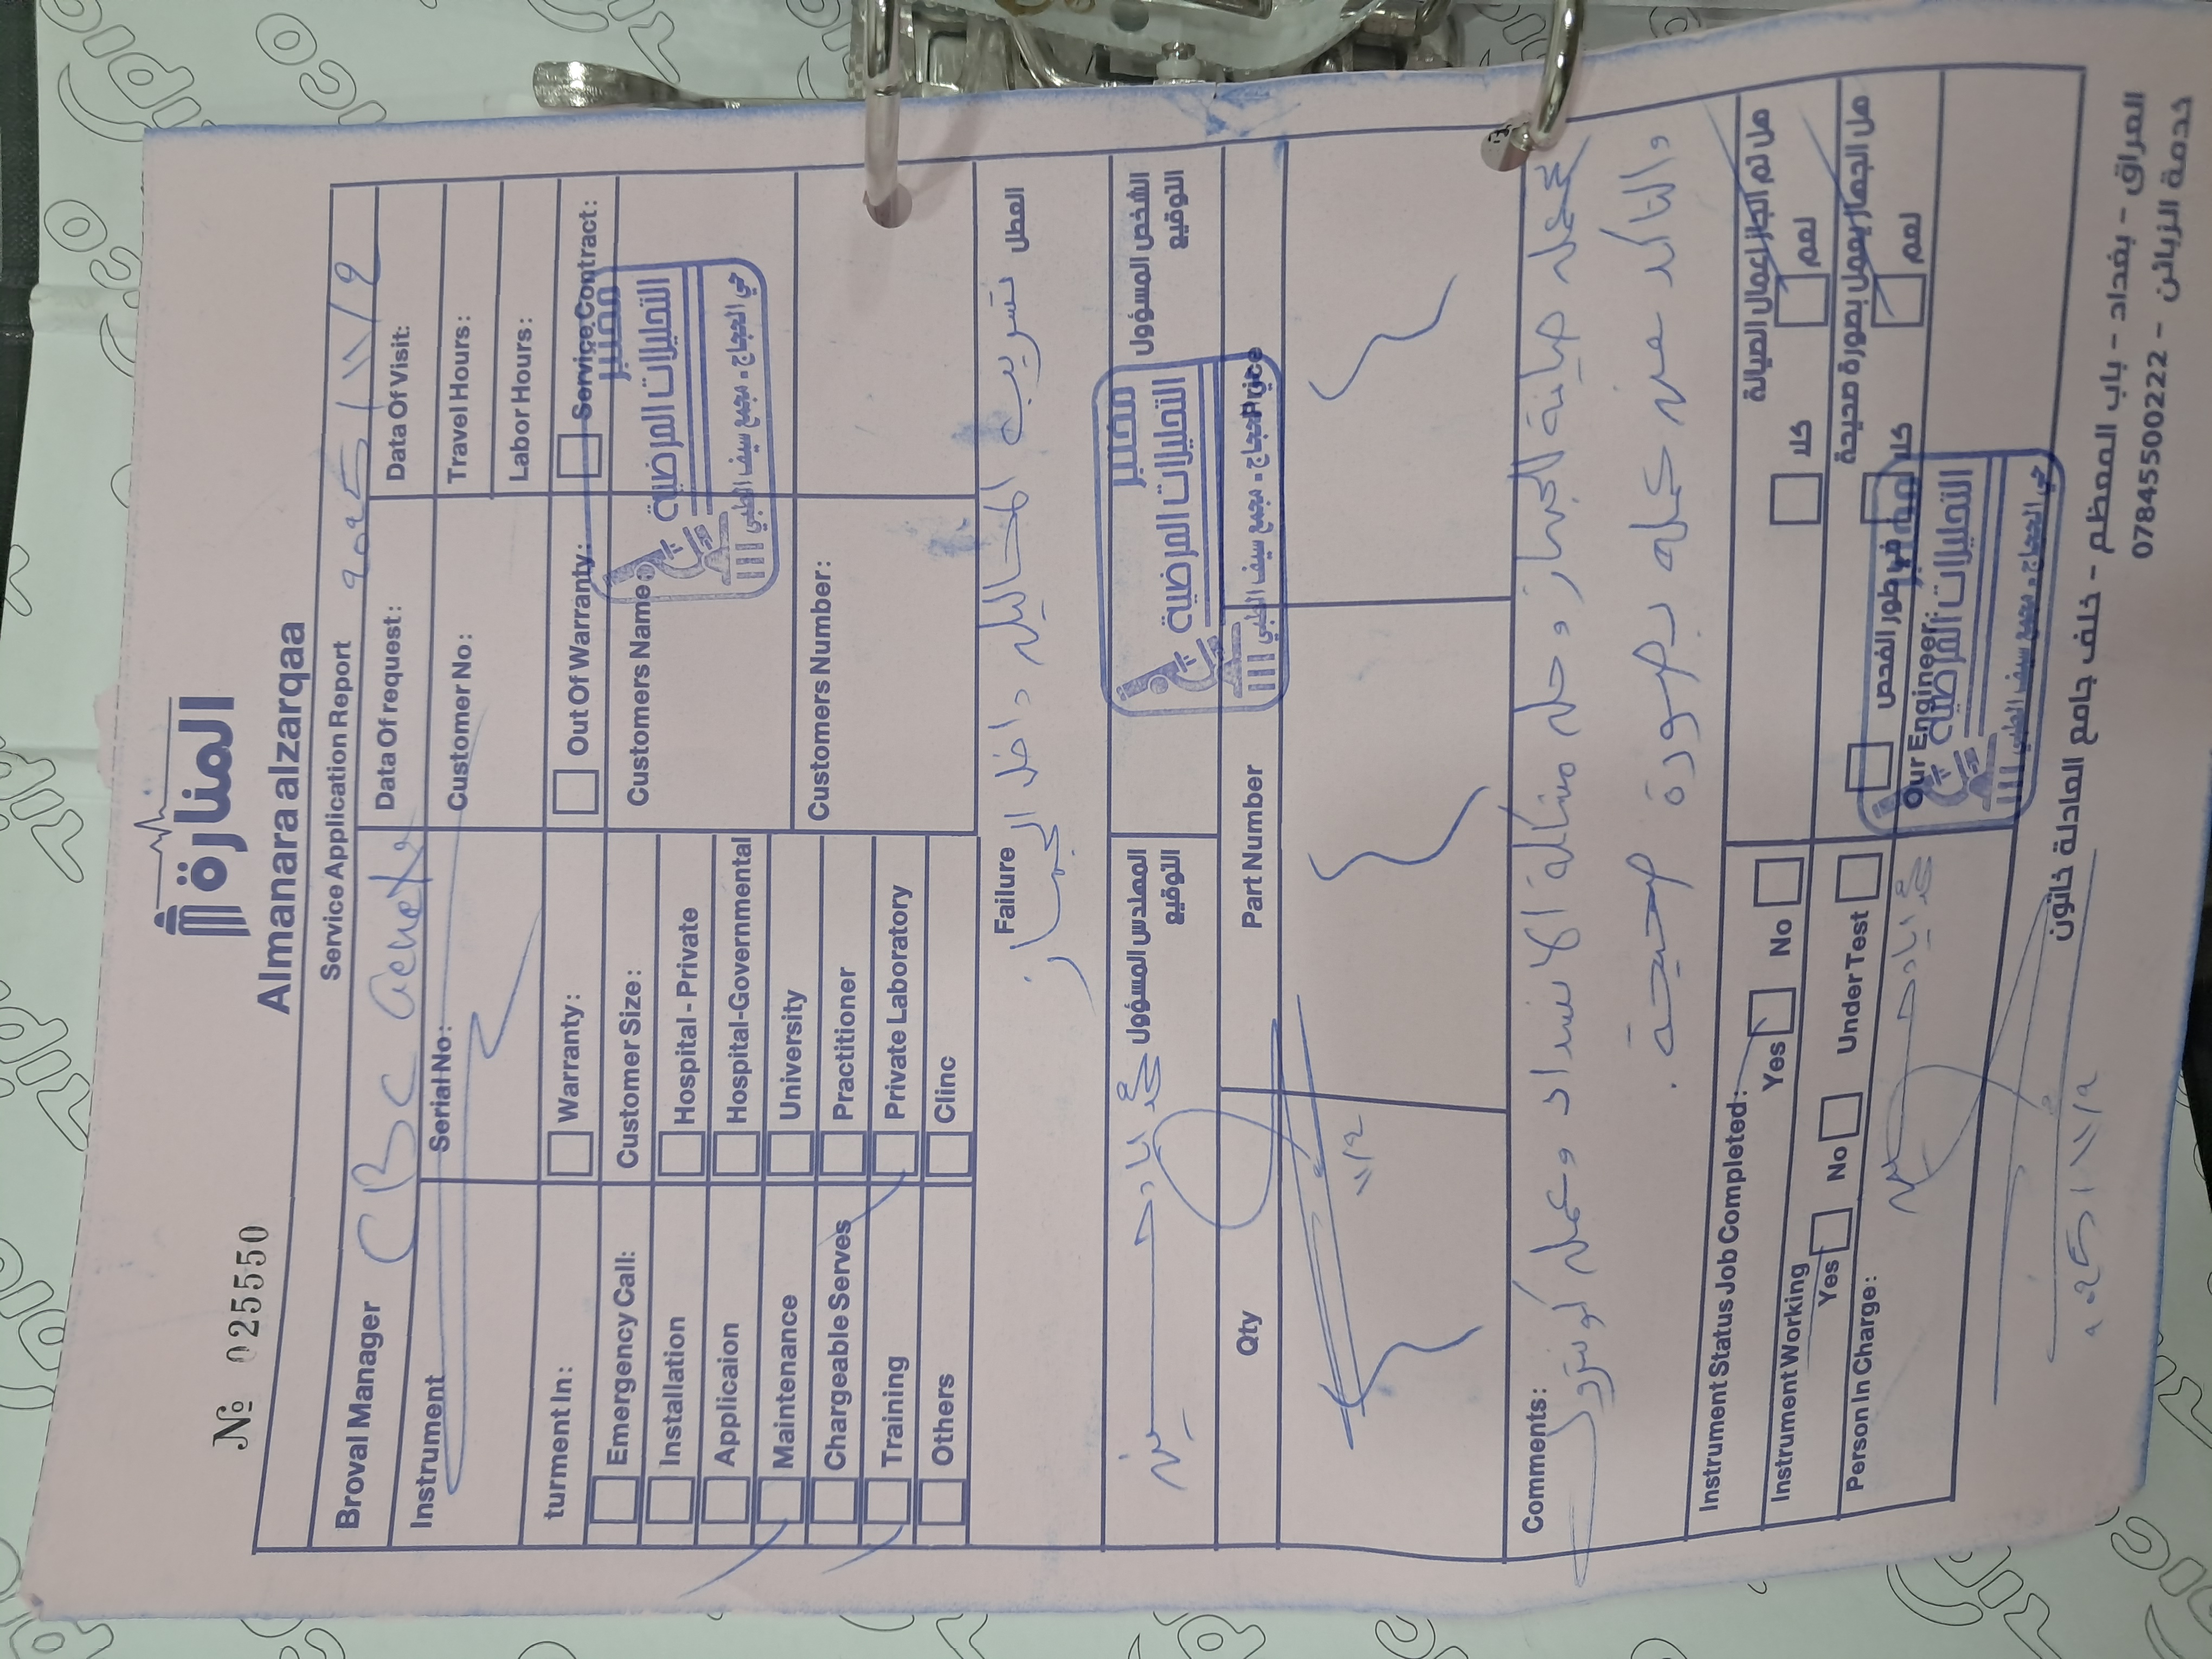 № 025550
المنارة
Almanara alzarqaa
Service Application Report
Broval Manager
CBC Genex
Data Of request:
2025/11/2
Data Of Visit:
Instrument
Serial No:
Customer No:
Travel Hours:
Labor Hours:
turment In:
Warranty:
Out Of Warranty:
Service Contract:
Emergency Call:
Customer Size:
Customers Name:
مختبر
التحليلات المرضية
حي الحجاج - مجمع سيف الطبي
Installation
Hospital - Private
Applicaion
Hospital-Governmental
Maintenance
University
Customers Number:
Chargeable Serves
Practitioner
Training
Private Laboratory
Others
Clinc
Failure
العطل
تسريب المحاليل داخل الجهاز
المهندس المسؤول
التوقيع
الشخص المسؤول
التوقيع
مختبر
التحليلات المرضية
حي الحجاج - مجمع سيف الطبي
Qty
Part Number
Price
11/2
Comments:
عمل صيانة الجهاز وحل مشكلة الانسداد وعمل كونترول
والتأكد من عمله بصورة صحيحة.
Instrument Status Job Completed:
Yes
No
هل تم انجاز اعمال الصيانة
كلا
نعم
Instrument Working
Yes
No
Under Test
هل الجهاز يعمل بصورة صحيحة
في طور الفحص
كلا
نعم
Person In Charge:
Our Engineer:
مختبر
التحليلات المرضية
حي الحجاج - مجمع سيف الطبي
2025/11/2
العراق - بغداد - باب المعظم - خلف جامع العادلة خاتون
خدمة الزبائن - 07845500222